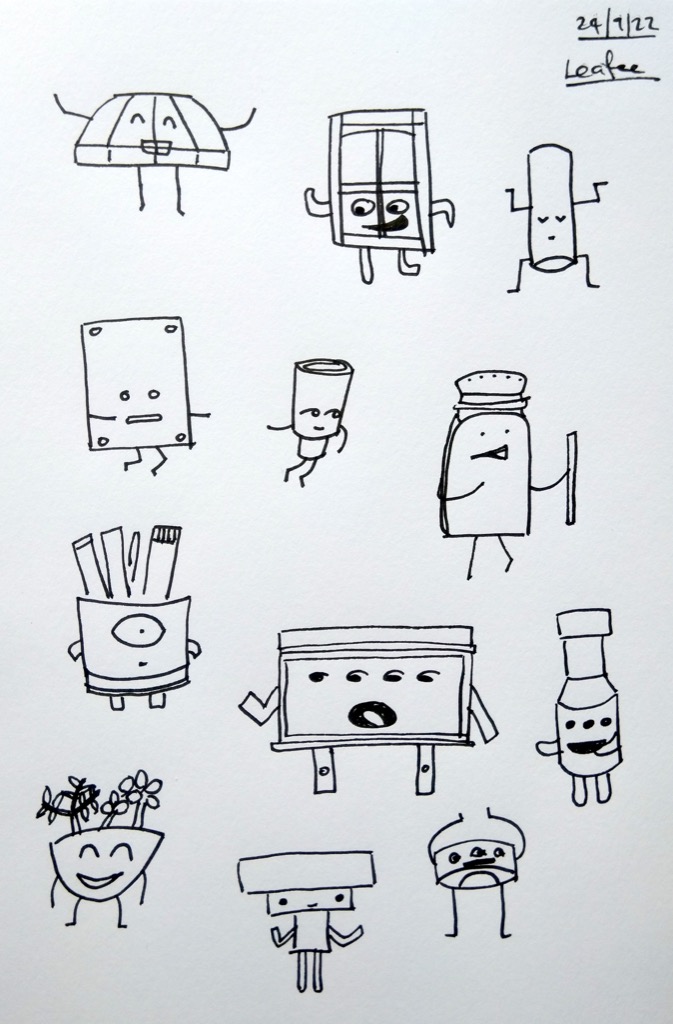 24/9/22
Leafee